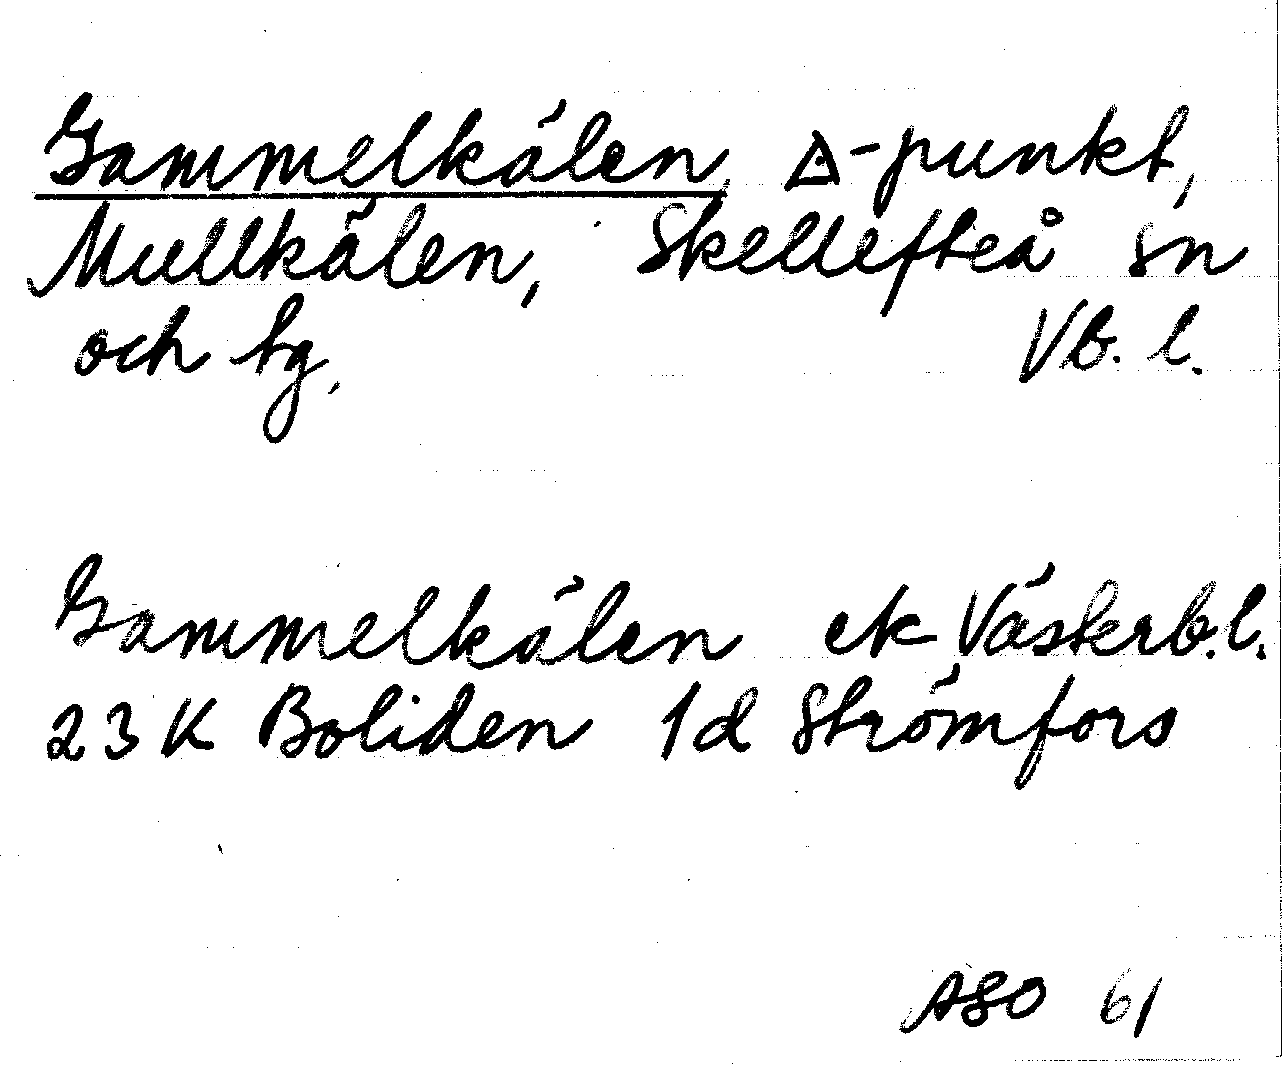 Gammelkälen, △-punkt,
Mullkälen, Skellefteå sn
och tg. Vb. l.
Gammelkälen ek Västerb.l.
23 K Boliden 1d Strömfors
ASO 61